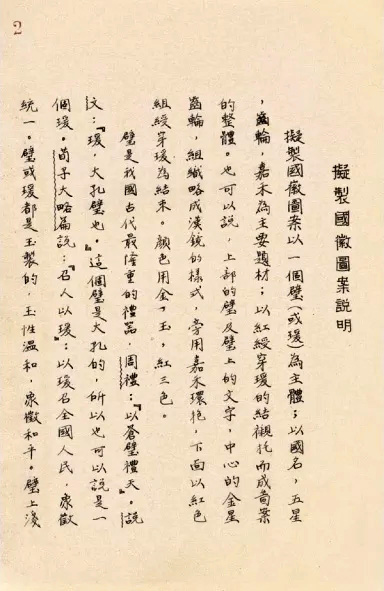 2
擬製國徽圖案説明
擬製國徽圖案以一個璧(或瑗)為主體;以國名,五星
,齒輪,嘉禾為主要題材;以紅綬穿瑗的結襯托而成圖案
的整體。也可以説,上部的璧及璧上的文字,中心的金星
齒輪,組織略成漢鏡的樣式,旁用嘉禾環抱,下面以紅色
組綬穿瑗為結束。顏色用金,玉,紅三色。
璧是我國古代最隆重的禮器,周禮:『以蒼璧禮天。』説
文:『瑗,大孔璧也。』這個璧是大孔的,所以也可以說是一
個瑗。荀子大略篇說:『召人以瑗』:以瑗召全國人民,象徵
統一。璧或瑗都是玉製的,玉性溫和,象徵和平。璧上淺